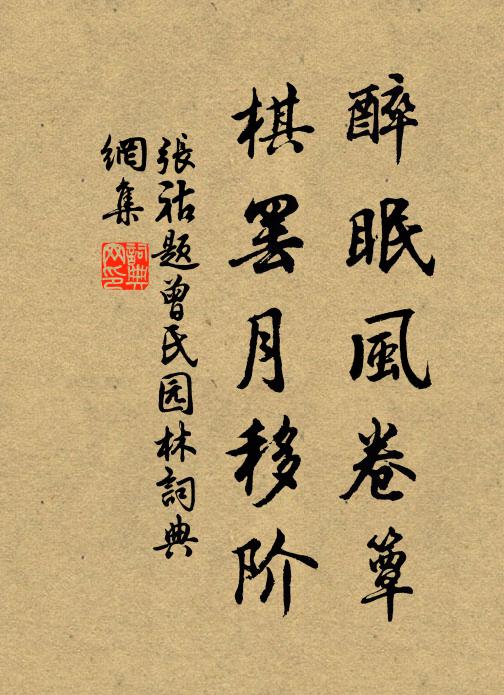 醉眠風卷簟
棋罢月移阶
張祜题曾氏园林詞典
網集
詞典
网印